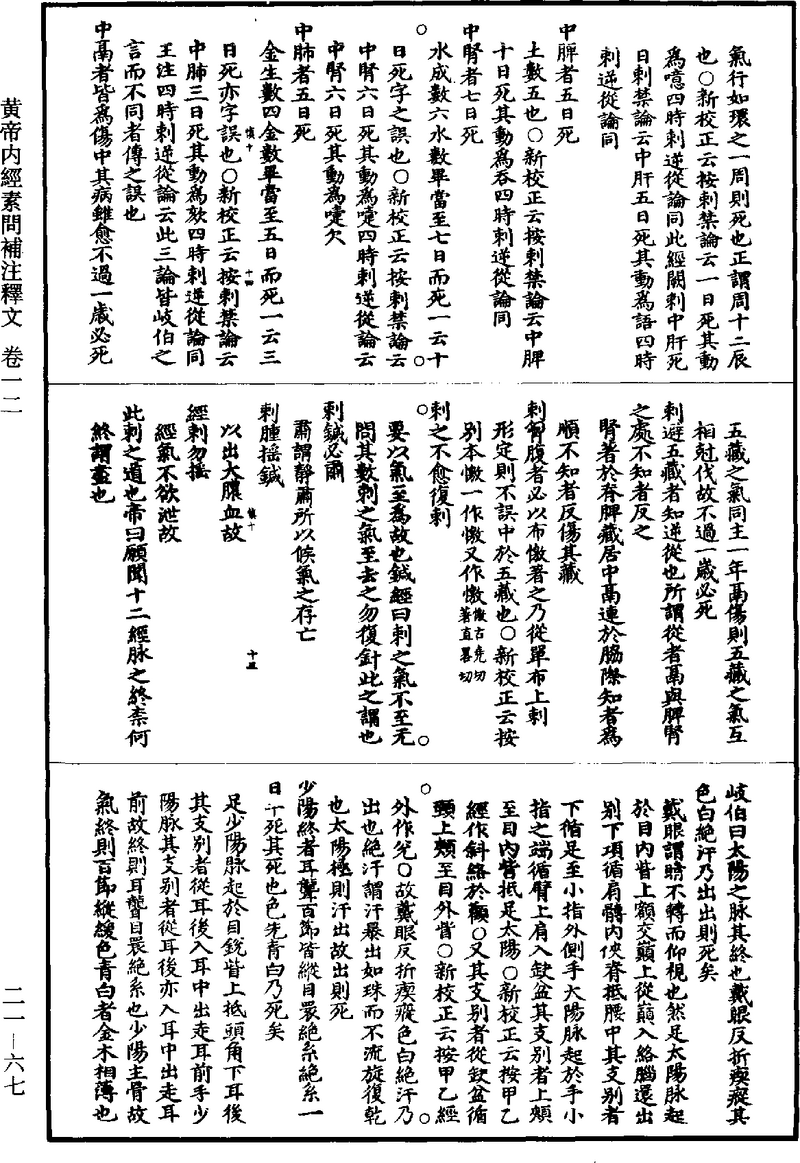 黄帝内經素問補注釋文　卷一二
二一—六七
氣行如環之一周則死也正謂周十二辰
也○新校正云按刺禁論云一日死其動
爲噫四時刺逆從論同此經闕刺中肝死
日刺禁論云中肝五日死其動爲語四時
刺逆從論同
中脾者五日死
土數五也○新校正云按刺禁論云中脾
十日死其動爲吞四時刺逆從論同
中腎者七日死
水成數六水數畢當至七日而死一云十
日死字之誤也○新校正云按刺禁論云
中腎六日死其動爲嚏四時刺逆從論云
中腎六日死其動爲嚏欠
中肺者五日死
金生數四金數畢當至五日而死一云三
日死亦字誤也○新校正云按刺禁論云
中肺三日死其動爲欬四時刺逆從論同
王注四時刺逆從論云此三論皆岐伯之
言而不同者傳之誤也
中鬲者皆爲傷中其病雖愈不過一歲必死
五藏之氣同主一年鬲傷則五藏之氣互
相尅伐故不過一歲必死
刺避五藏者知逆從也所謂從者鬲與脾腎
之處不知者反之
腎著於脊脾藏居中鬲連於脇際知者爲
順不知者反傷其藏
刺胷腹者必以布憿著之乃從單布上刺
形定則不誤中於五藏也○新校正云按
別本憿一作㦎又作撽
刺之不愈復刺
要以氣至爲故也鍼經曰刺之氣不至无
問其數刺之氣至去之勿復針此之謂也
刺鍼必肅
肅謂靜肅所以候氣之存亡
刺腫搖鍼
以出大膿血故
經刺勿搖
經氣不欲泄故
此刺之道也帝曰願聞十二經脉之終柰何
終謂盡也
岐伯曰太陽之脉其終也戴眼反折瘈瘲其
色白絶汗乃出出則死矣
戴眼謂睛不轉而仰視也然足太陽脉起
於目内眥上額交巔上從巔入絡腦還出
別下項循肩髆内俠脊抵腰中其支別者
下循足至小指外側手太陽脉起於手小
指之端循臂上肩入缺盆其支別者上頰
至目内眥抵足太陽○新校正云按甲乙
經作斜絡於顴○又其支別者從缺盆循
頸上頰至目外眥○新校正云按甲乙經
外作兊○故戴眼反折瘈瘲色白絶汗乃
出也絶汗謂汗暴出如珠而不流旋復乾
也太陽極則汗出故出則死
少陽終者耳聾百節皆縱目睘絶系絶系一
日半死其死也色先青白乃死矣
足少陽脉起於目鋭眥上抵頭角下耳後
其支別者從耳後入耳中出走耳前手少
陽脉其支別者從耳後亦入耳中出走耳
前故終則耳聾目睘絶系也少陽主骨故
氣終則百節縱緩色青白者金木相薄也